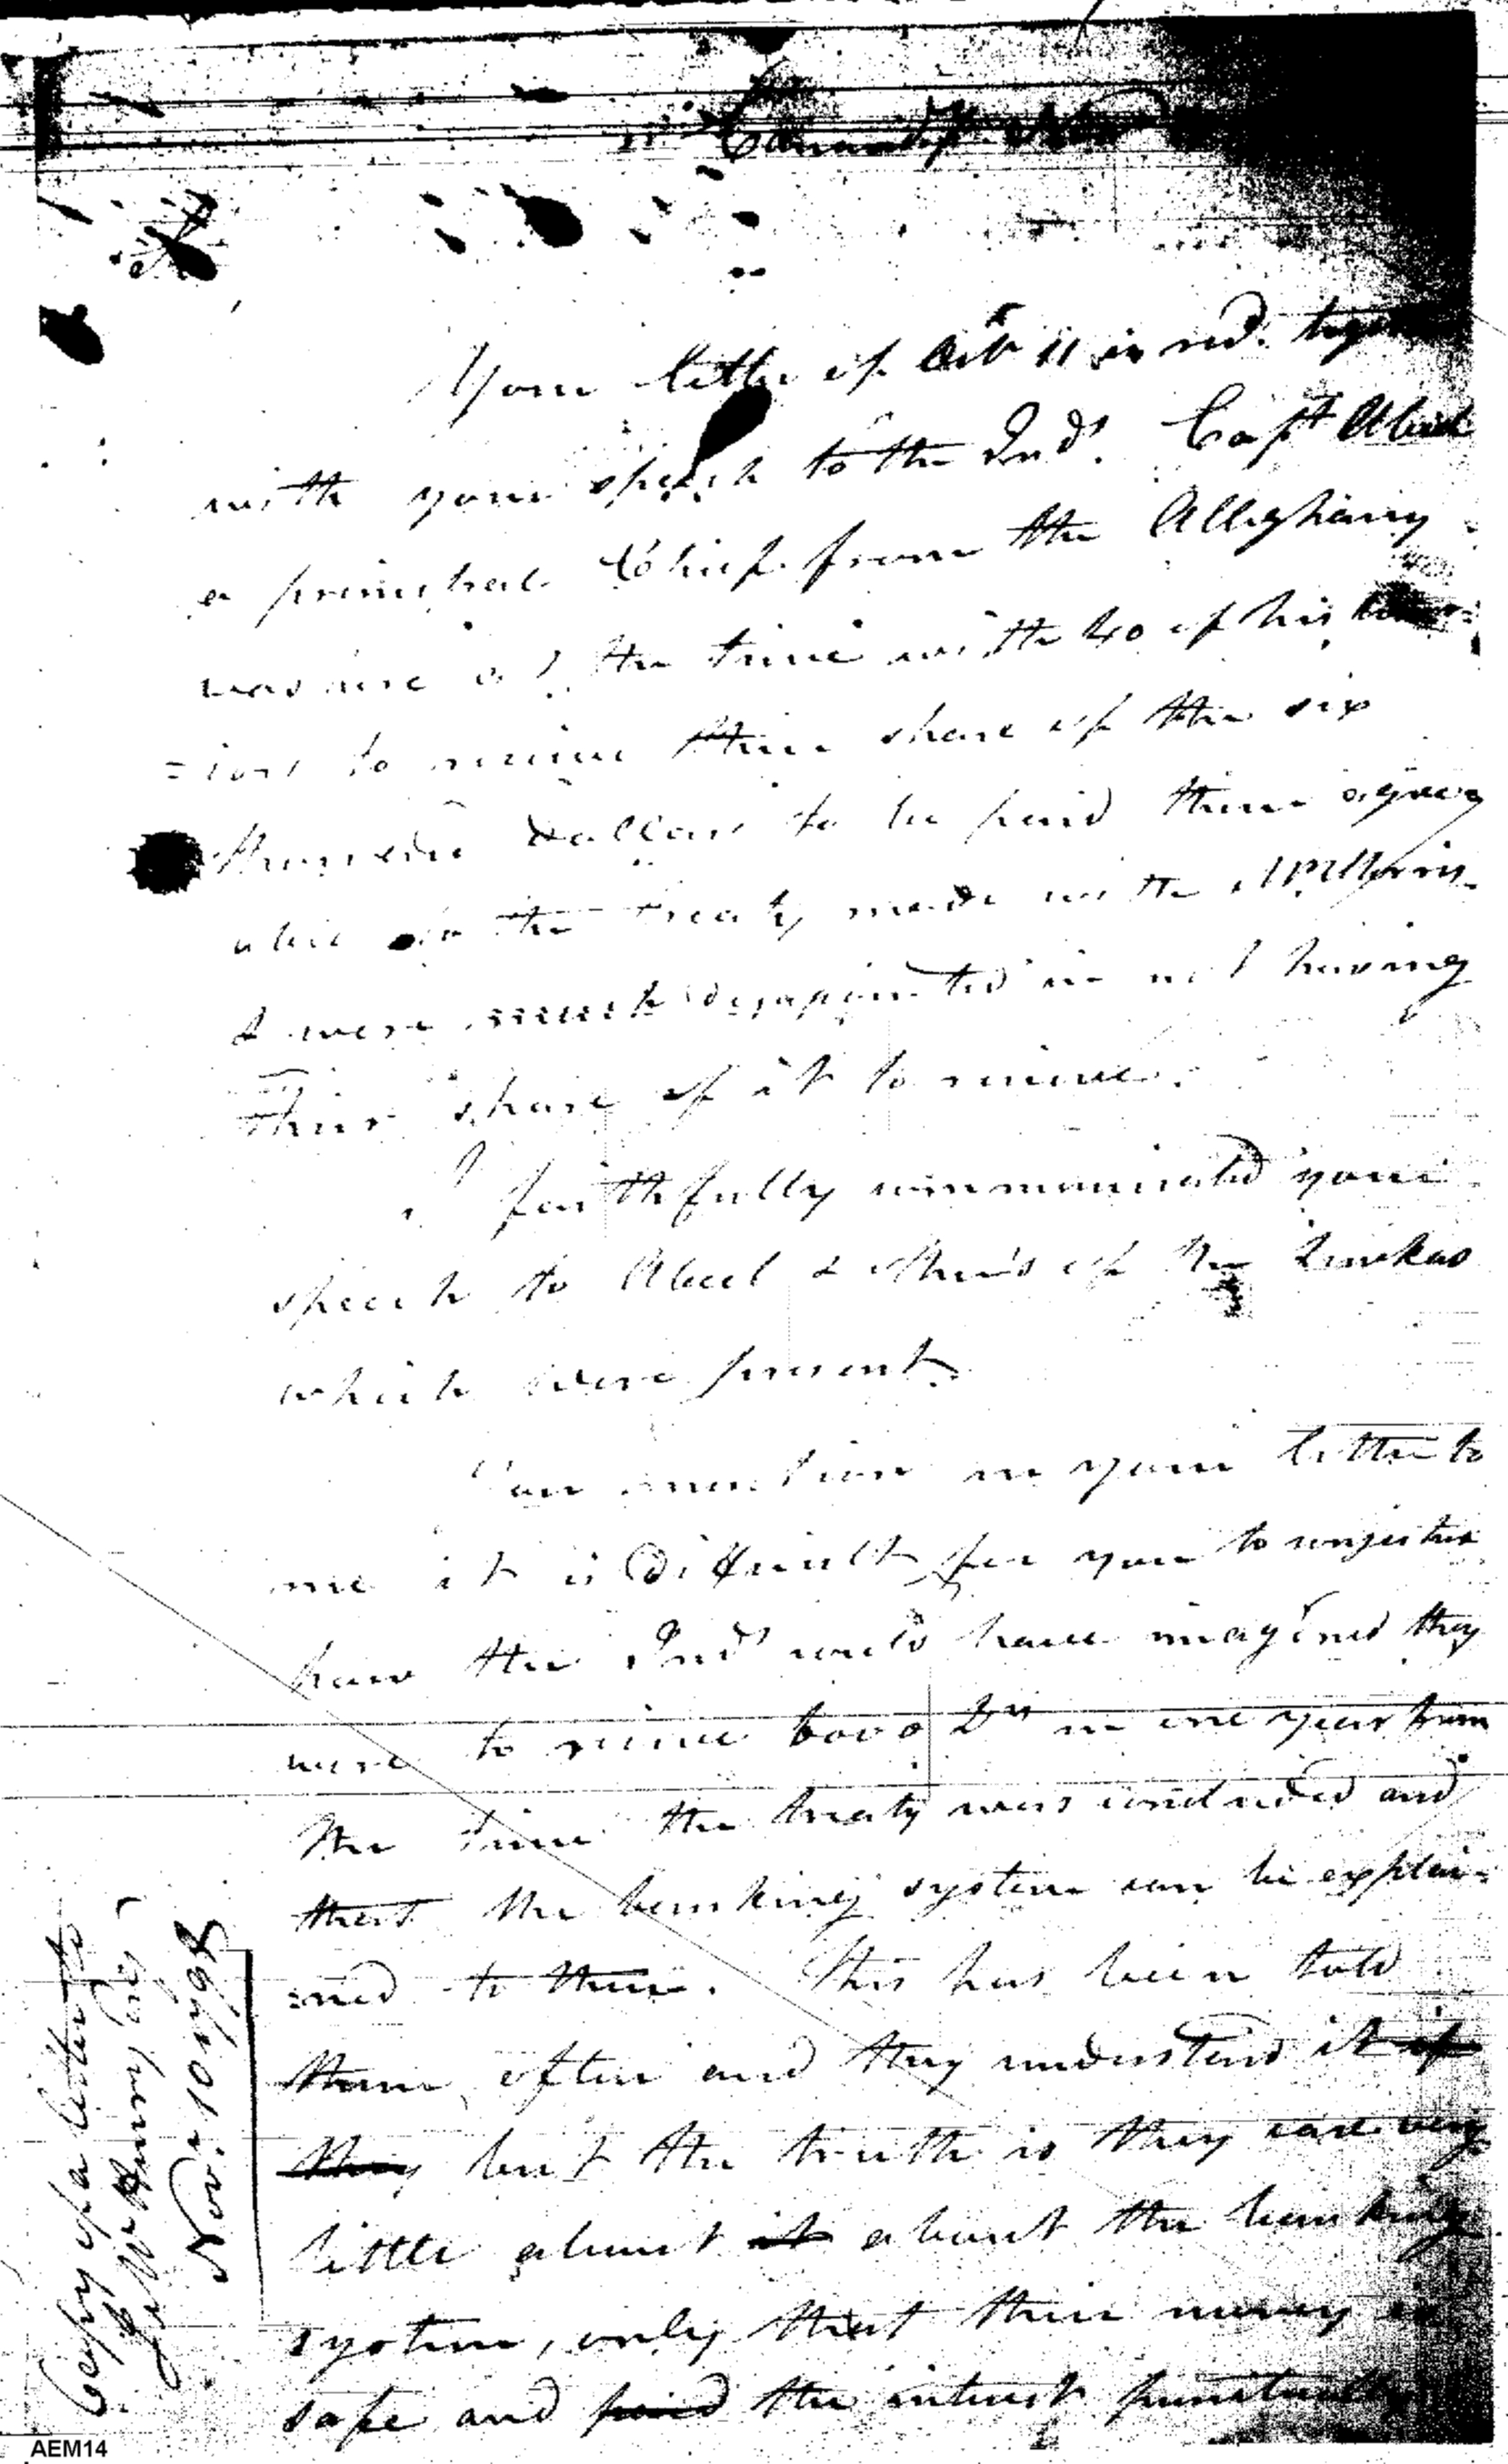 Canandq. Nov
Your letter of Octr 11 is recd. toge
with your speech to the Inds. Capt Abeel
a principal Chief from the Alleghany
was here at the time with 40 of his
=iors to receive their share of the six
thousand dollars to be paid them agree
able to the treaty made with Mr Morris
& were much disappointed in not having
their share of it to receive.
I faithfully communicated your
speech to Abeel & others of the Senekas
which were present.
You mention in your letter to
me it is difficult for you to conjecture
how the Inds could have imagined they
were to receive 6000 Drs in one year from
the time the treaty was concluded and
that the banking system can be explai=
=ned to them. This has been told
them often and they understand it if
they but the truth is they care very
little about it about the banking
system, only that their money is
safe and paid the interest punctually
Copy of a letter to
Jas McHenry Esqr
Novr. 10 1798
AEM14